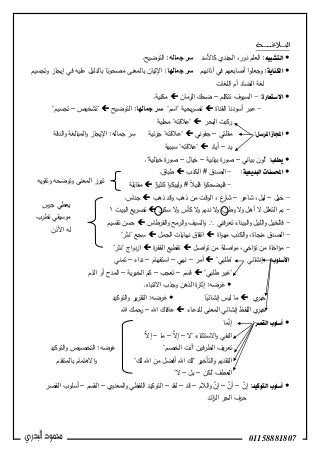 البـلاغـــة
التشبيه: العلم نور، الجندي كالأسد سر جماله: التوضيح.
الكناية: وجعلوا أصابعهم في آذانهم سر جمالها: الإتيان بالمعنى مصحوبًا بالدليل عليه في إيجاز وتجسيم
لغة الضاد أم اللغات
الاستعارة: – السيوف تتكلم – ضحك الزمان مكنية.
– عبر أسودنا القناة تصريحية "اسم" سر جمالها: التوضيح "تشخيص – تجسيم"
ركبت البحر "علاقته" محلية
المجاز المرسل: مقلتي – جفوني "علاقته" جزئية سر جماله: الإيجاز والمبالغة والدقة
يد – أياد "علاقته" سببية
يطلب لون بياني – صورة بيانية – خيال – صورة خيالية.
المحسنات البديعية: – الصدق # الكذب طباق.
– فليضحكوا قليلًا # وليبكوا كثيرًا مقابلة تبرز المعنى وتوضحه وتقويه
– خيل – ليل، شاعر – شارع ، الوقت من ذهب وقد ذهب جناس.
– بم التعلل لا أهل ولا وطن ولا نديم ولا كأس ولا سكن تصريع البيت ١ يعطي جرس
– فالخيل والليل والبيداء تعرفني والسيف والرمح والقرطاس حسن تقسيم موسيقي تطرب
– الصدق منجاة، والكذب مهواة اتفاق نهايات الجمل سجع "نثر" له الأذن
– مؤاخاة من تؤاخي، مواصلة من تواصل تقطيع الفقرة ازدواج "نثر"
الأسلوب: إنشائي "طلبي" أمر – نهي – استفهام – نداء – تمني
"غير طلبي" قسم – تعجب – كم الخبرية – المدح أو الذم
غرضه: إثارة الذهن وجذب الانتباه.
خبري ما ليس إنشائيًا غرضه: التقرير والتوكيد
خبري اللفظ إنشائي المعنى للدعاء عافاك الله – رحمك الله
أسلوب القصر: إنما
النفي والاستثناء "لا – إلّا – ما – إلّا
تعريف الطرفين "أنت الخصم" غرضه: التخصيص والتوكيد
التقديم والتأخير "لك الله أفضل من الله لك" والاهتمام بالمتقدم
العطف لكن – بل – لا"
أسلوب التوكيد: إنّ – أنّ – إنّ واللام – قد – لقد – التوكيد اللفظي والمعنوي – القسم – أسلوب القصر
حرف الجر الزائد
01158881807 محمود البدري